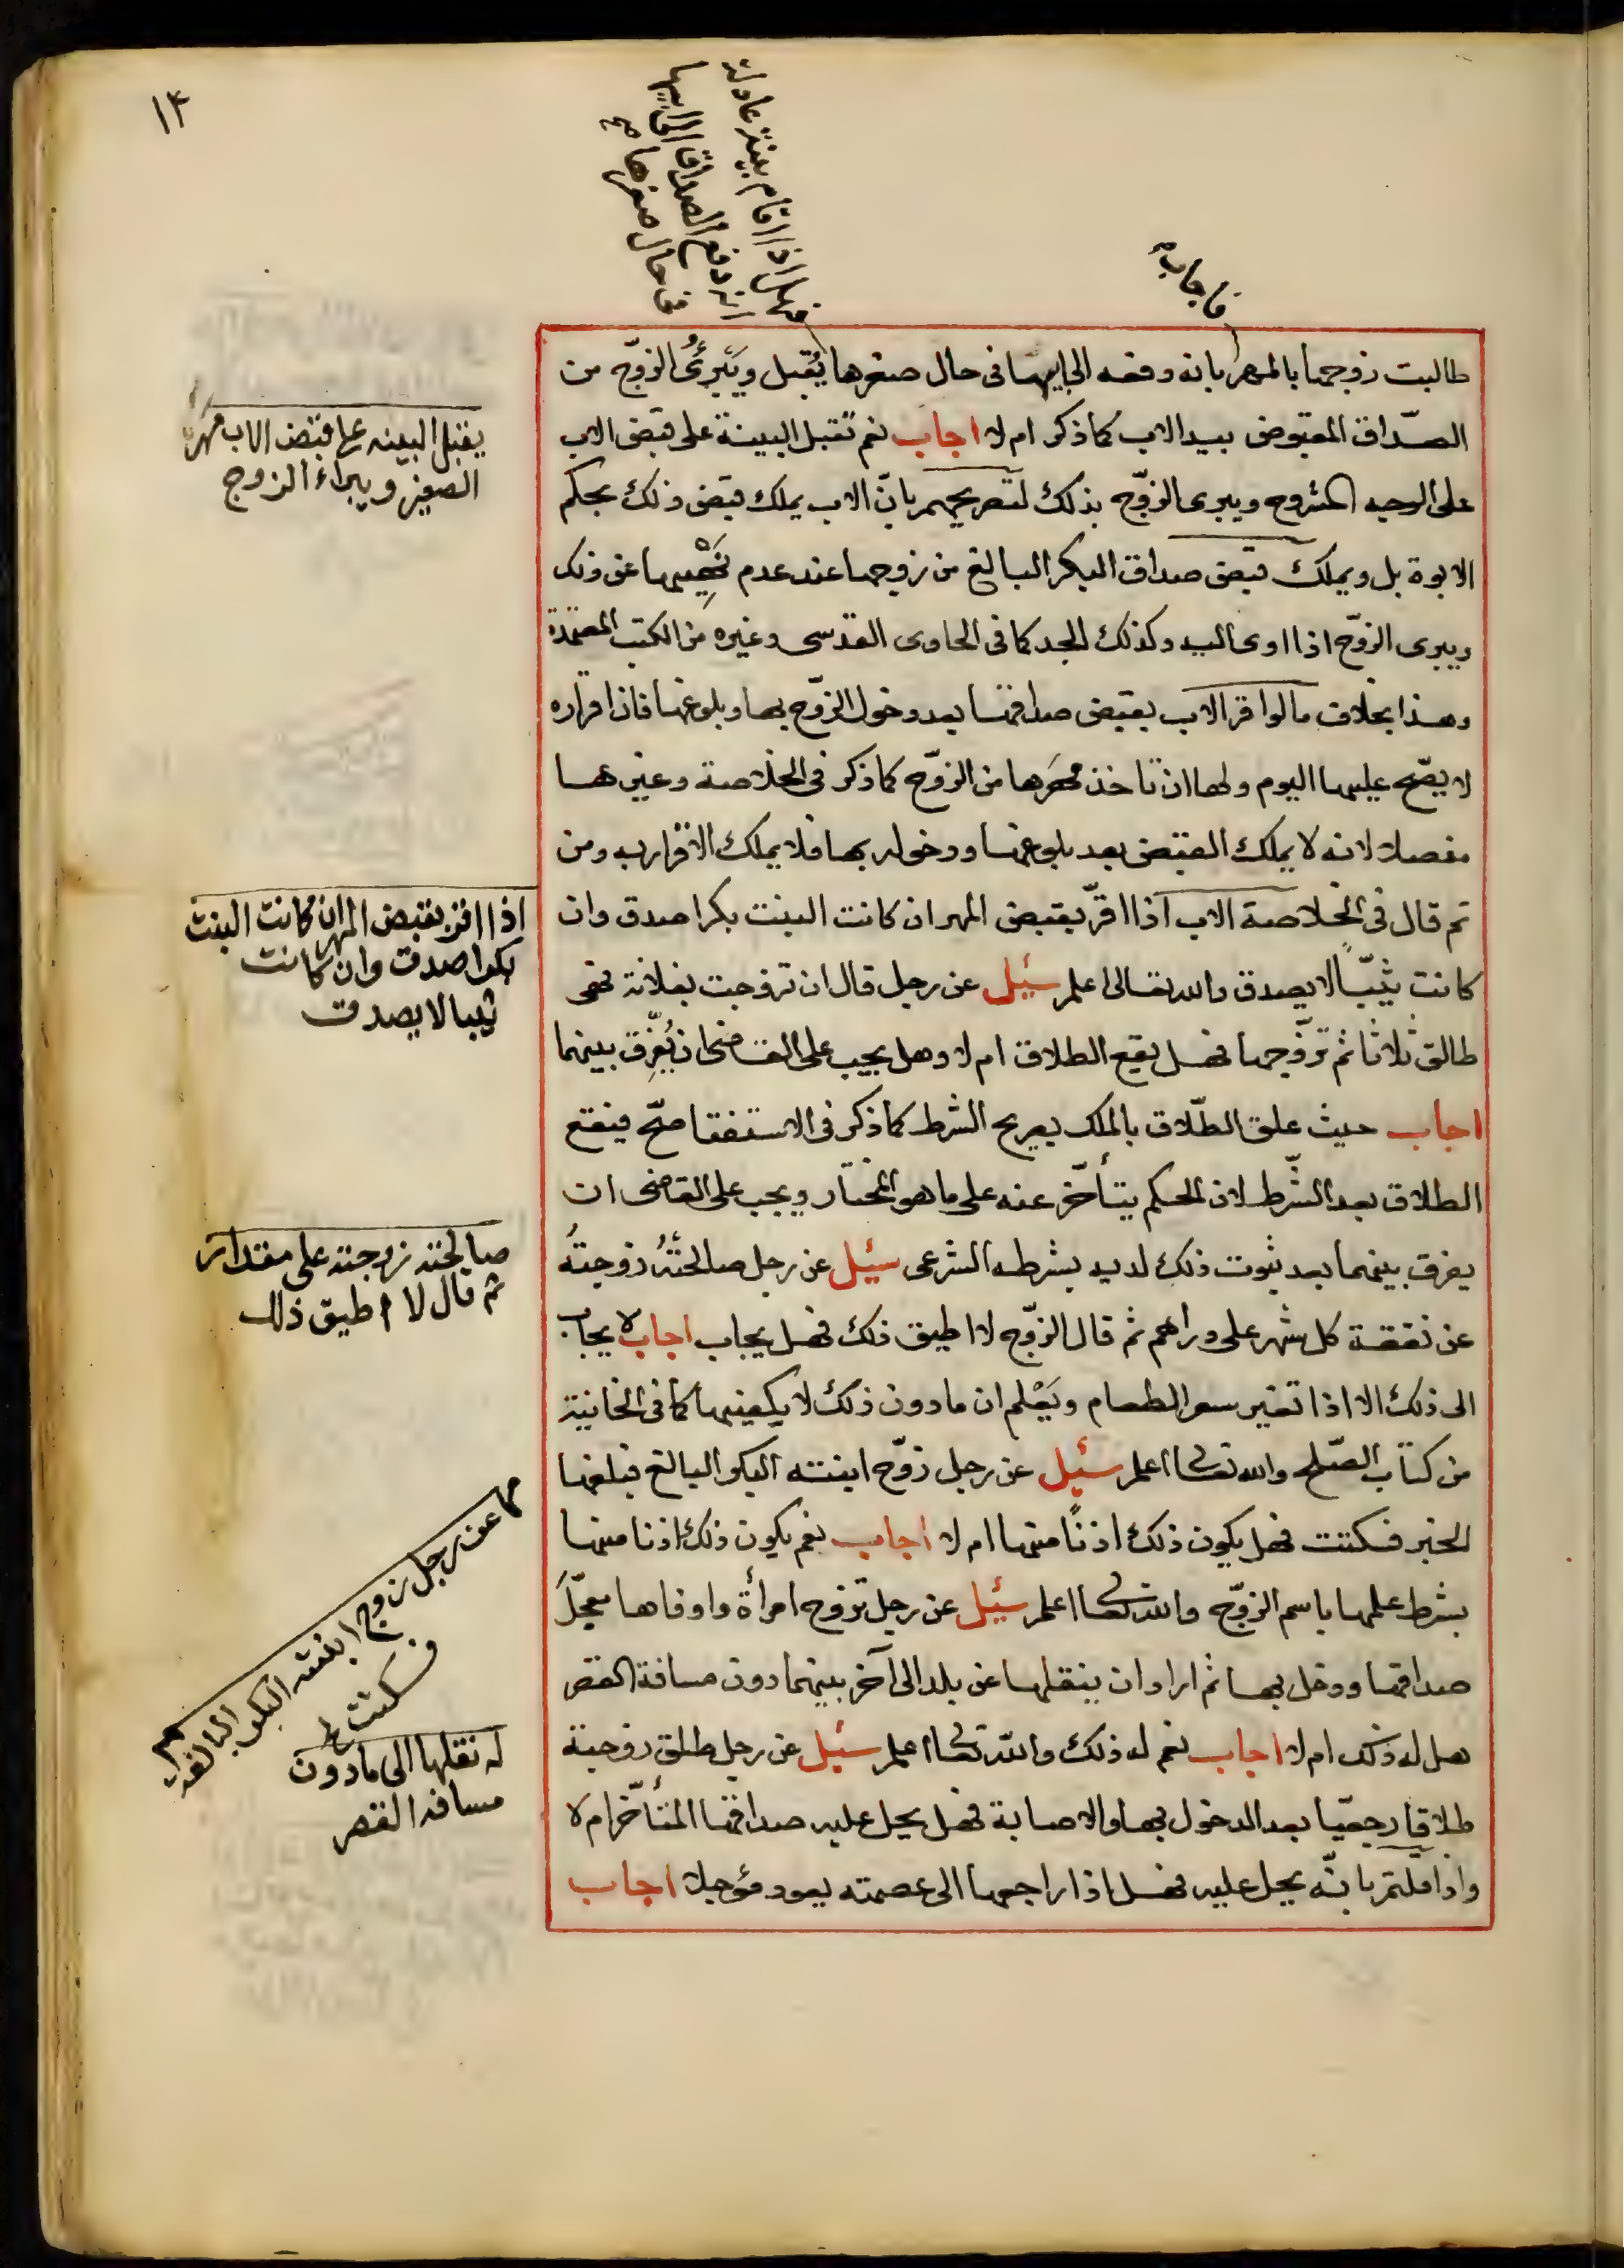 ١٤
فاجابه
فهل اذا اقام بينة عادلة
انه دفع الصداق الى ابيها
فى حال صغرها صح
طالبت زوجها بالمهر بانه دفعه الى ابيها فى حال صغرها يُقبل ويَبرئُ الزوّج من
الصّداق المقبوض بيد الاب كما ذكر ام لا اجاب نعم تقبل البينة على قبض الاب
على الوجه المشروح ويبرى الزوّج بذلك لتصريحهم بانّ الاب يملك قبض ذلك بحكم
الابوة بل ويملك قبض صداق البكر البالغ من زوجها عند عدم نَهْيِها عن ذلك
ويبرى الزوّج اذا ادى اليه وكذلك الجد كما فى الحاوى القدسى وغيره من الكتب المعتمدة
وهذا بخلاف ما لو اقر الاب بقبض صداقها بعد دخول الزوّج بها وبلوغها فان اقراره
لا يصّح عليها اليوم ولها ان تاخذ مهَرها من الزوّج كما ذكر فى الخلاصة وغيرها
مفصلا لانه لا يملك القبض بعد بلوغها ودخوله بها فلا يملك الاقرار به ومن
ثم قال فى الخلاصة الاب اذا اقرّ بقبض المهر ان كانت البنت بكرا صدق وان
كانت ثيّباً لا يصدق والله تعالى اعلم سئيل عن رجل قال ان تزوجت بفلانة فهى
طالق ثلاثا ثم تزوّجها فهل يقع الطلاق ام لا وهل يجب على القاضى ان يُفرِّق بينهما
اجاب حيث علق الطّلاق بالملك بصريح الشرط كما ذكر فى الاستفتا صحّ فيقع
الطلاق بعد الشّرط لان الحكم يتأخّر عنه على ما هو المختار ويجب على القاضى ان
يفرق بينهما بعد ثبوت ذلك لديه بشرطه الشرعى سئيل عن رجل صالحتْهُ زوجتهُ
عن نفقة كل شهر على دراهم ثم قال الزوّج لا اطيق ذلك فهل يجاب اجاب لا يجاب
الى ذلك الا اذا تغير سعر الطعام ويَعْلم ان ما دون ذلك لا يكفيها كما فى الخانية
من كتاب الصّلح والله تعالى اعلم سئيل عن رجل زوّج ابنته البكر البالغ فبلغها
الخبر فسكتت فهل يكون ذلك اذناً منها ام لا اجاب نعم يكون ذلك اذنا منها
بشرط علمها باسم الزوّج والله تعالى اعلم سئيل عن رجل تزوج امرأة واوفاها معجّلَ
صداقها ودخل بها ثم اراد ان ينقلها عن بلد الى آخر بينهما دون مسافة القصر
هل له ذلك ام لا اجاب نعم له ذلك والله تعالى اعلم سئيل عن رجل طلق زوجته
طلاقا رجعيّا بعد الدخول بها والاصابة فهل يحل عليه صداقها المتأخّر ام لا
واذا قلتم بانّه يحل عليه فهل اذا راجعها الى عصمته يعود مؤجلا اجاب
يقبل البينه على قبض الاب مهر
الصغيز ويبراء الزوج
اذا اقر بقبض المهر ان كانت البنت
بكرا صدق وان كانت
ثيبا لا يصدق
صالحته زوجته على مقدار
ثم قال لا اطيق ذلك
عن رجل زوج ابنته البكر البالغة
فسكتت
له نقلها الى ما دون
مسافة القصر